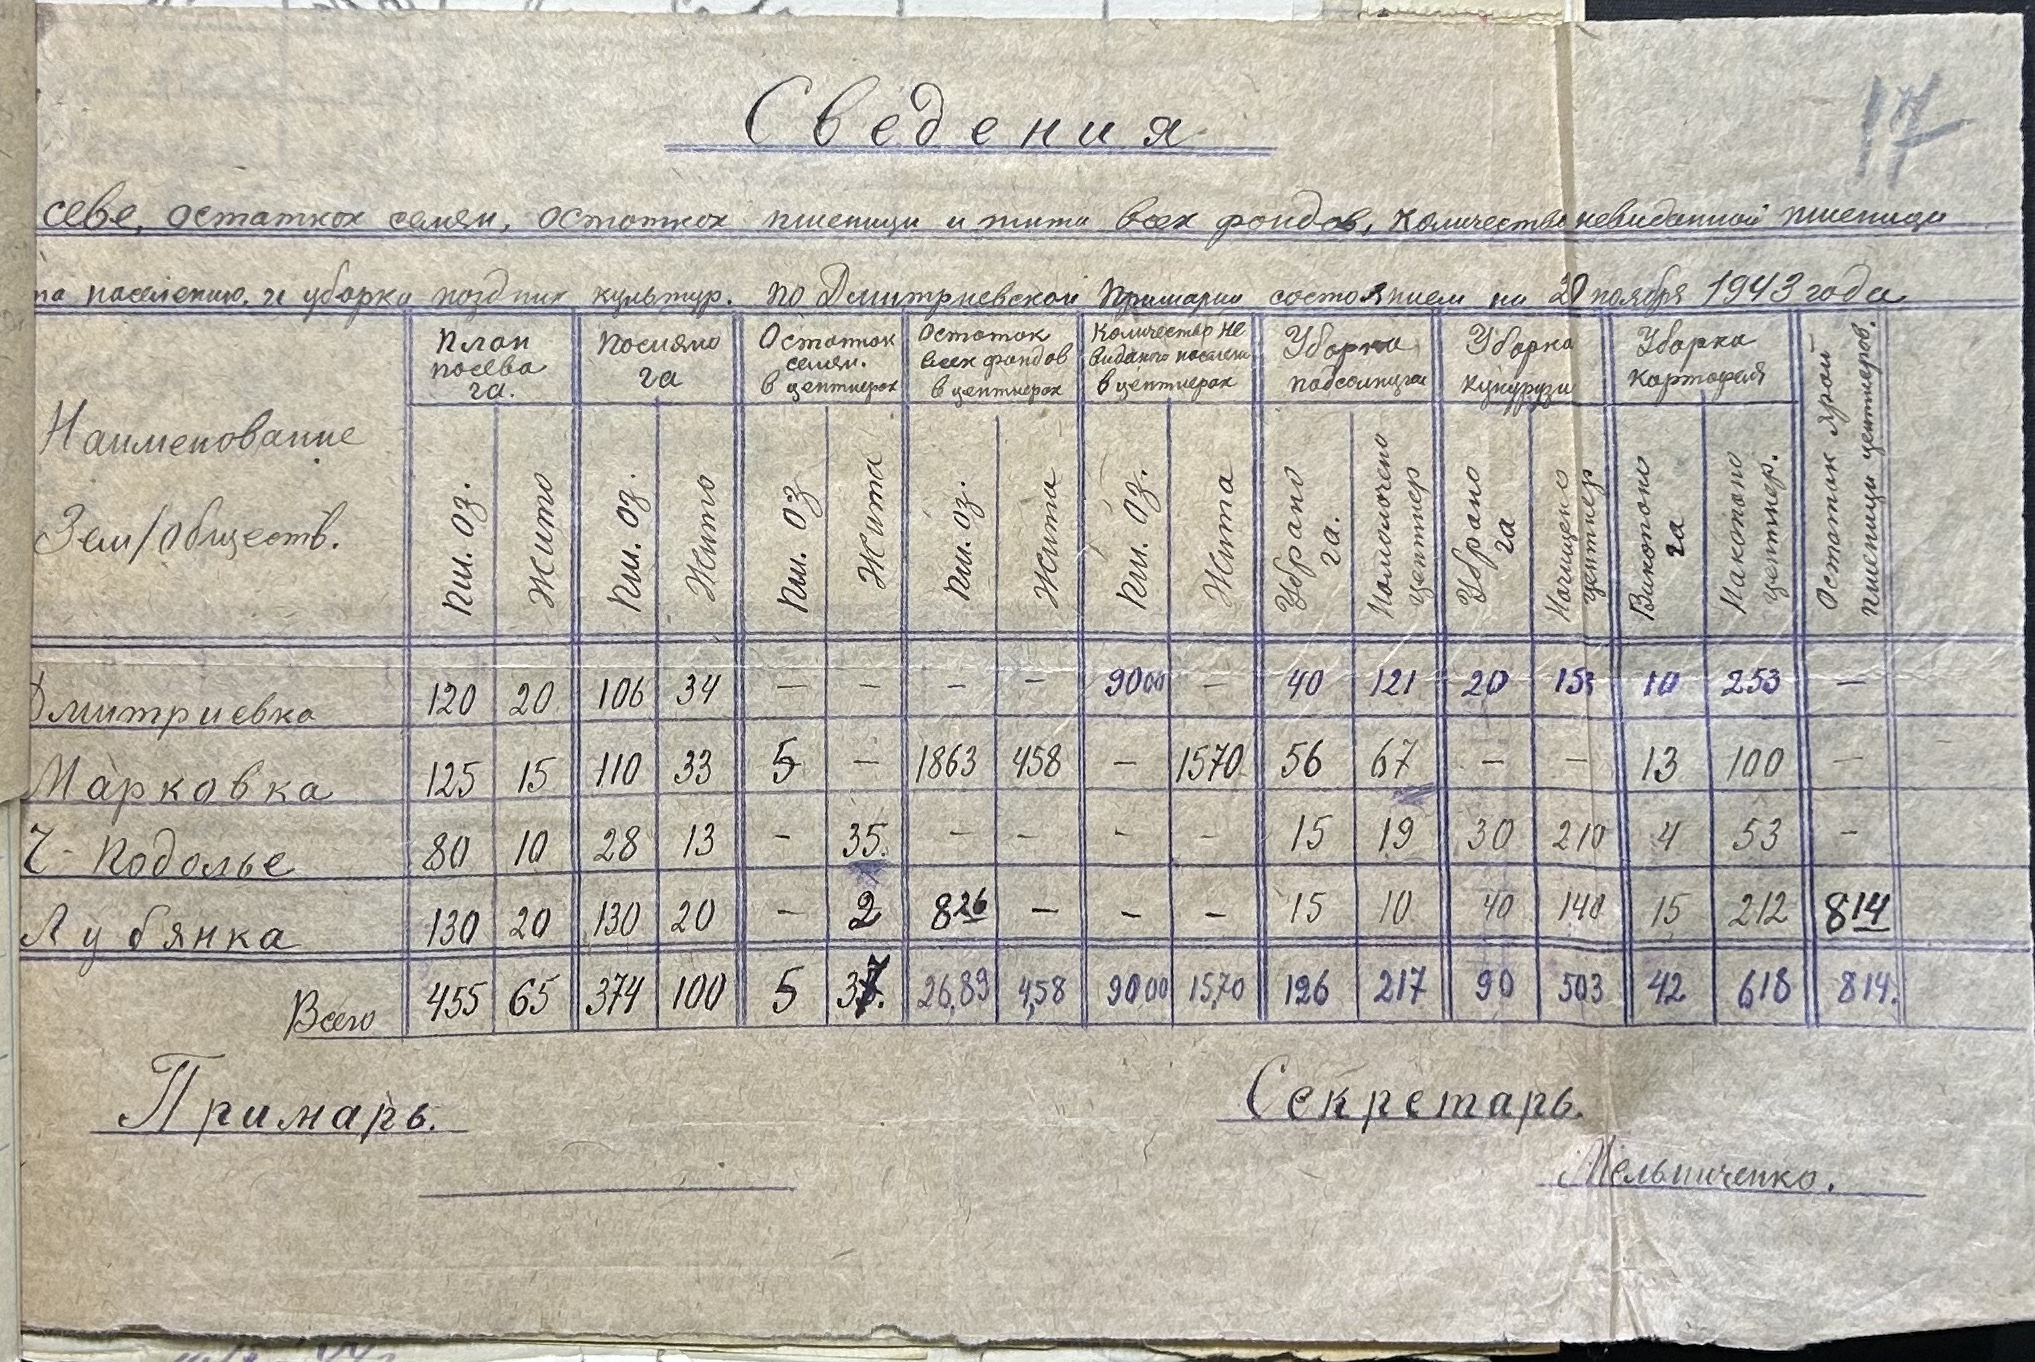 17
Сведения
севе, остатках семян, остатках пшеници и жита всех фондов, количество невиданной пшеници
на населению. и уборки поздних культур. по Дмитриевской Примарии состоянием на 20 ноября 1943 года
Наименование Зем/обществ. План посева га. Посияно га Остаток семян. в центнерах Остаток всех фондов в центнерах Количество не виданого населен. в центнерах Уборка подсолнуха Уборка кукурузи Уборка картофеля Остаток Ярой пшеници центнеров.
Пш. оз. Жито Пш. оз. Жито Пш. оз Жита Пш. оз. Жита Пш. оз. Жита Убрано га. Намолочено центнер Убрано га Начищено центнер Викопано га Накопано центнер.
Дмитриевка 120 20 106 34 — — — — 9000 — 40 121 20 153 10 253 —
Марковка 125 15 110 33 5 — 1863 458 — 1570 56 67 — — 13 100 —
Ч-Подолье 80 10 28 13 — 35. — — — — 15 19 30 210 4 53 —
Лубянка 130 20 130 20 — 2 826 — — — 15 10 40 140 15 212 814
Всего 455 65 374 100 5 37. 26,89 4,58 9000 15,70 126 217 90 503 42 618 814.
Примарь. Секретарь.
Мельниченко.